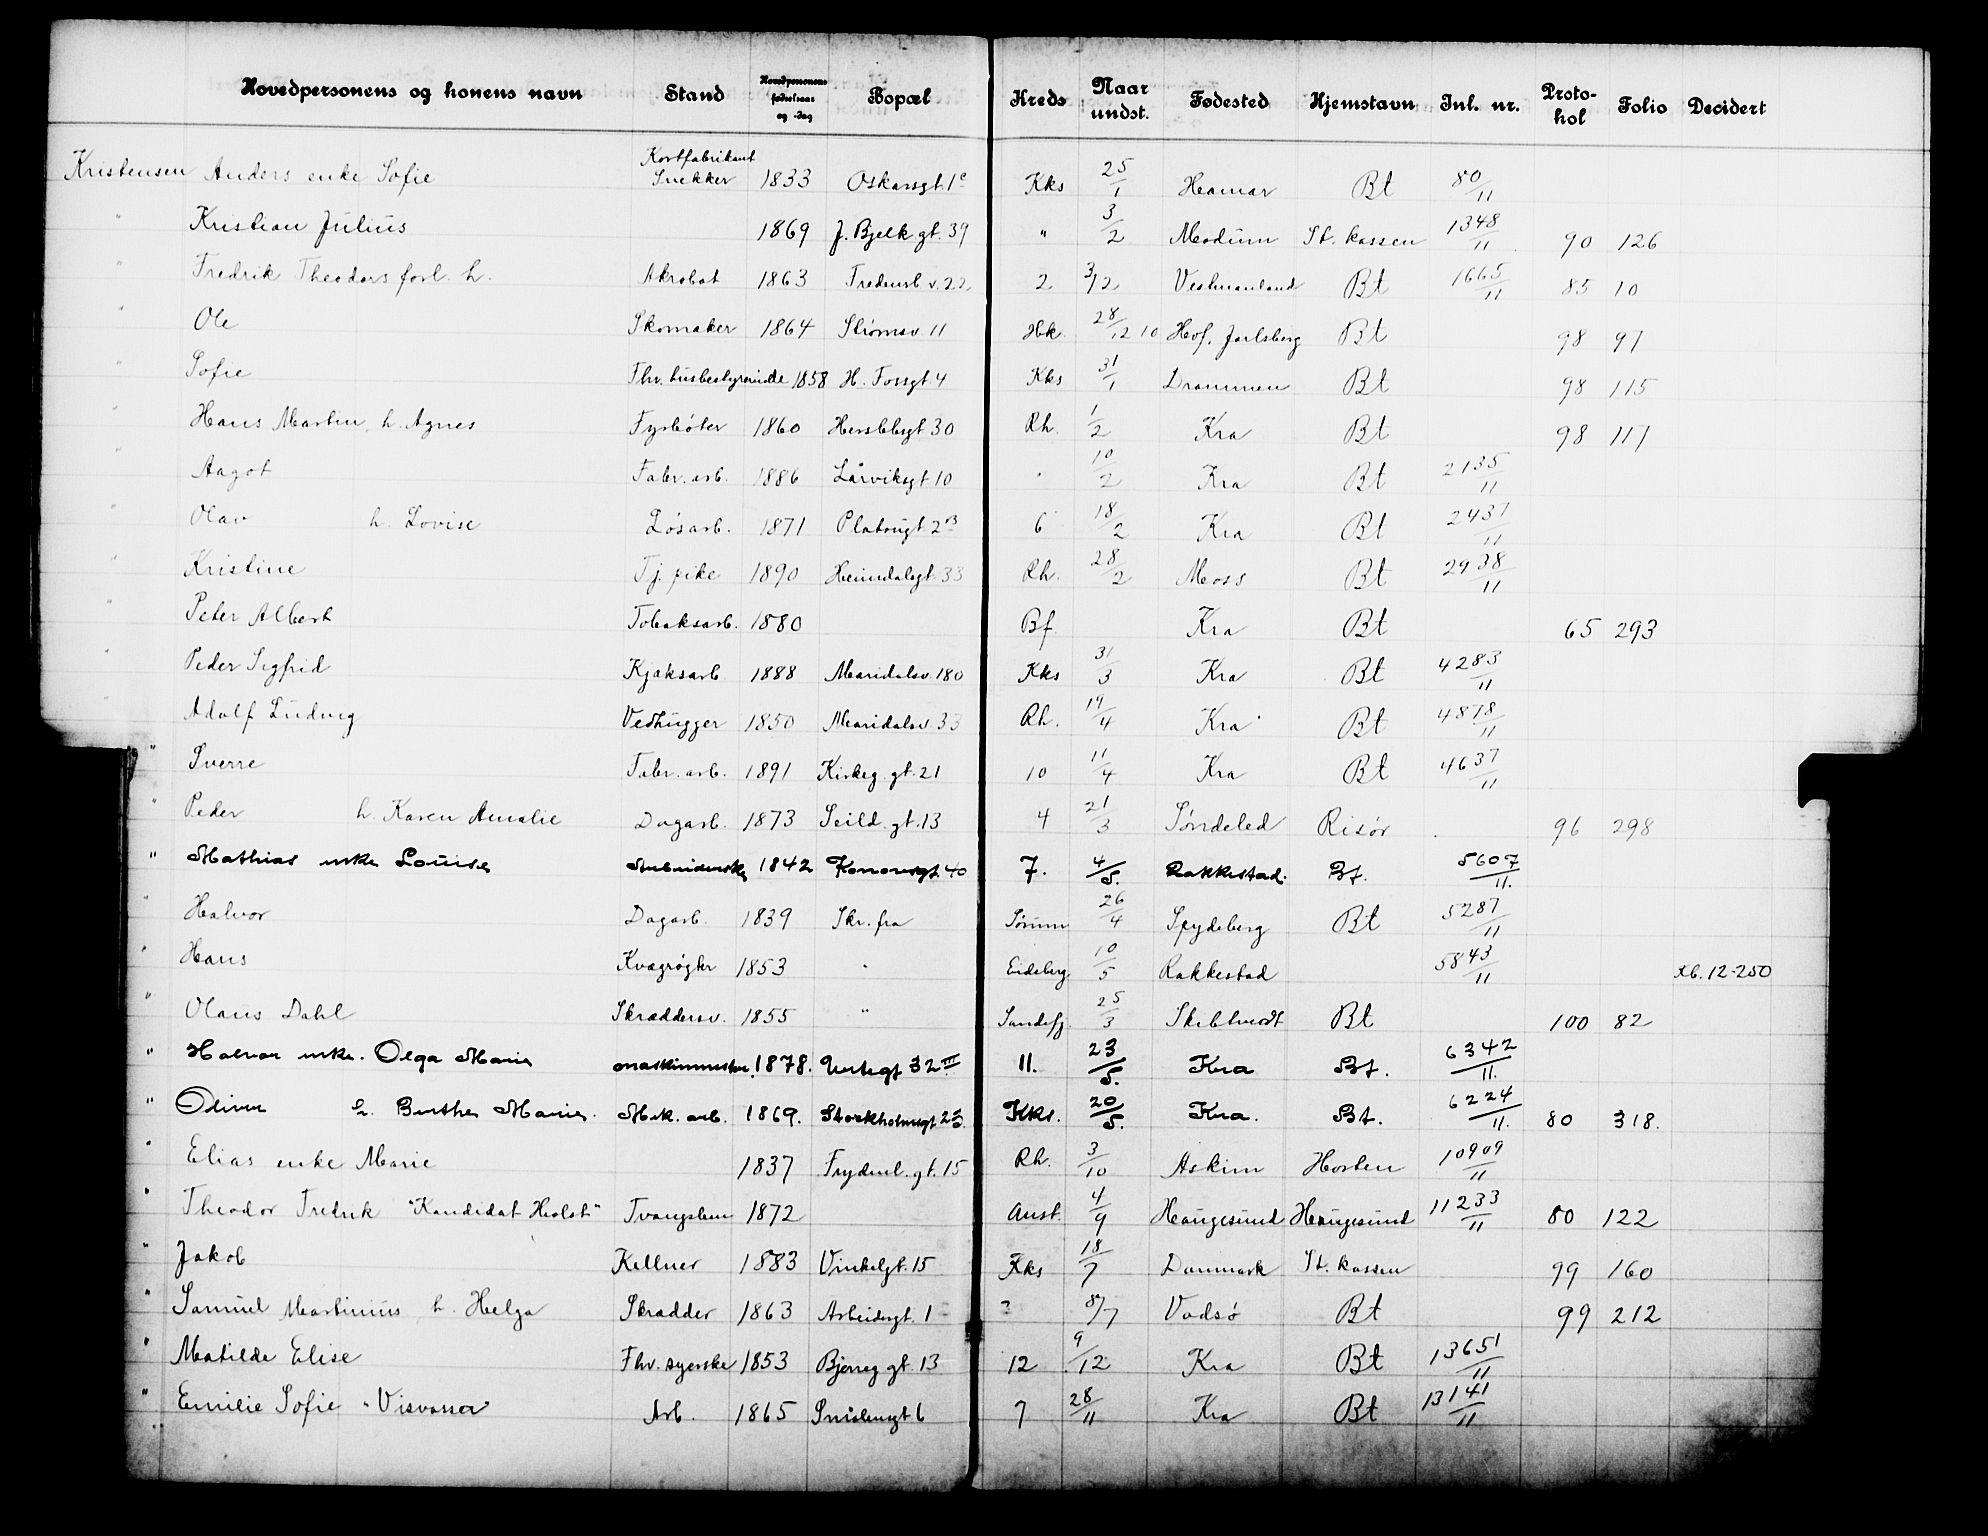 Hovedpersonens og konens navn Stand Hovedpersonens fødselsaar og -dag Bopæl Kreds Naar undst. Fødested Hjemstavn Inl. nr. Protokol Folio Decidert
Kristensen Anders enke Sofie Kortfabrikant Snekker 1833 Oskarsgt. 1c Kks 25/1 Hamar Bt 80/11
" Kristian Julius 1869 J. Bjelk gt. 39 " 3/2 Modum St. kassen 1348/11 90 126
" Fredrik Theodors forl. h. Akrobat 1863 Fredensb v. 22 2 3/2 Vestmanland Bt 1665/11 85 10
" Ole Skomaker 1864 Strømsv 11 Hk. 28/12 10 Hof, Jarlsberg Bt 98 97
" Sofie Fhv. husbestyrerinde 1858 H. Fossgt 4 Kks 31/1 Drammen Bt 98 115
" Hans Martin, h. Agnes Fyrbøter 1860 Herslebsgt 30 Rh. 1/2 Kra Bt 98 117
" Aagot Fabr. arb. 1886 Larviksgt 10 " 10/2 Kra Bt 2135/11
" Olav h. Lovise Løsarb. 1871 Platousgt 2B 6 18/2 Kra Bt 2437/11
" Kristine Tj. pike 1890 Heimdalsgt. 33 Rh. 28/2 Moss Bt 2938/11
" Peter Albert Tobaksarb. 1880 Bf. Kra Bt 65 293
" Peder Sigfrid Kjøksarb 1888 Maridalsv. 180 Kks 31/3 Kra Bt 4283/11
" Adolf Ludvig Vedhugger 1850 Maridalsv. 33 Rh. 19/4 Kra Bt 4878/11
" Sverre Fabr. arb. 1891 Kirkeg. gt. 21 10 11/4 Kra Bt 4637/11
" Peder h. Karen Amalie Dagarb. 1873 Seild. gt. 13 4 21/3 Søndeled Risør 96 298
" Mathias enke Louise Arbeiderske 1842 40 7. 4/5. Rakkestad. Bt. 5607/11.
Halvor Dagarb. 1839 Skr. fra Sørum 26/4 Spydeberg Bt 5287/11
" Hans Kvægrøgter 1853 " Eidsberg 10/5 Rakkestad 5843/11 Xb. 12-250
" Olaus Dahl Skræddersv. 1855 " Sandefj. 25/3 Skibtvedt Bt 100 82
" Halvor enke. Olga Marie maskinmester. 1878. Urtegt 32 III 11. 23/5. Kra Bt. 6342/11.
" Oliver h. Berthe Marie. Mek. arb. 1869. Stockholmsgt 25. Kks. 20/5. Kra. Bt. 6224/11. 80 318.
" Elias enke Marie 1837 Frydenl. gt. 15 Rh. 3/10 Askim Horten 10909/11
" Theodor Fredrik "Kandidat Holst" Tvangslem 1872 Anst. 4/9 Haugesund Haugesund 11233/11 80 122
" Jakob Kellner 1883 Vinkelgt. 15 Kks 18/7 Danmark St. kassen 99 160
" Samuel Martinius, h. Helga Skrædder 1863 Arbeidergt. 1 ? 8/7 Vadsø Bt 99 212
" Matilde Elise Fhv. syerske 1853 Bjerreg gt. 13 12 9/12 Kra Bt 13651/11
" Emilie Sofie "Visvassa" Arb. 1865 Smålensgt 6 7 28/11 Kra Bt 13141/11